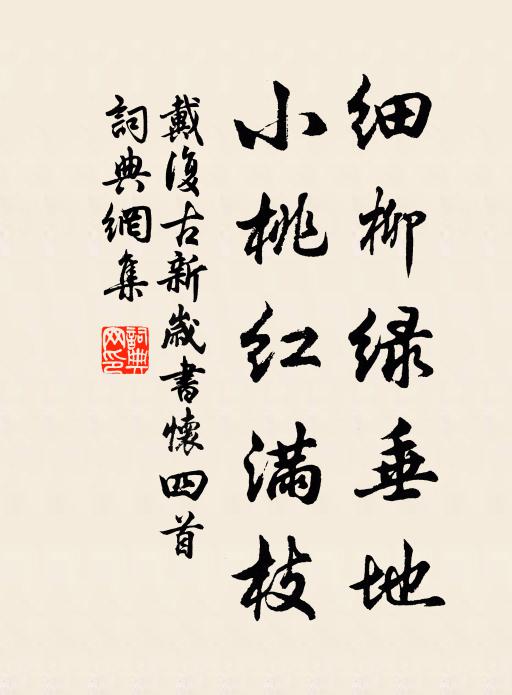 细柳绿垂地
小桃红满枝
戴復古新歲書懷四首
詞典網集
詞典網印